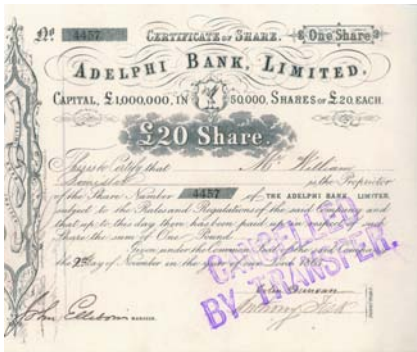 No. 4457 CERTIFICATE OF SHARE. One Share
ADELPHI BANK, LIMITED.
CAPITAL, £1,000,000, IN 50,000, SHARES OF £20 EACH.
£20 Share.
This is to Certify that Mr. William
is the Proprietor
of the Share Number 4457 of THE ADELPHI BANK LIMITED
subject to the Rules and Regulations of the said Company and
that up to this day there has been paid up in respect of such
Share the sum of One Pound
Given under the Common Seal of the said Company
the 9th day of November in the year of our Lord 186
CANCELLED
BY TRANSFER.
John MANAGER.
Duncan
Anthony